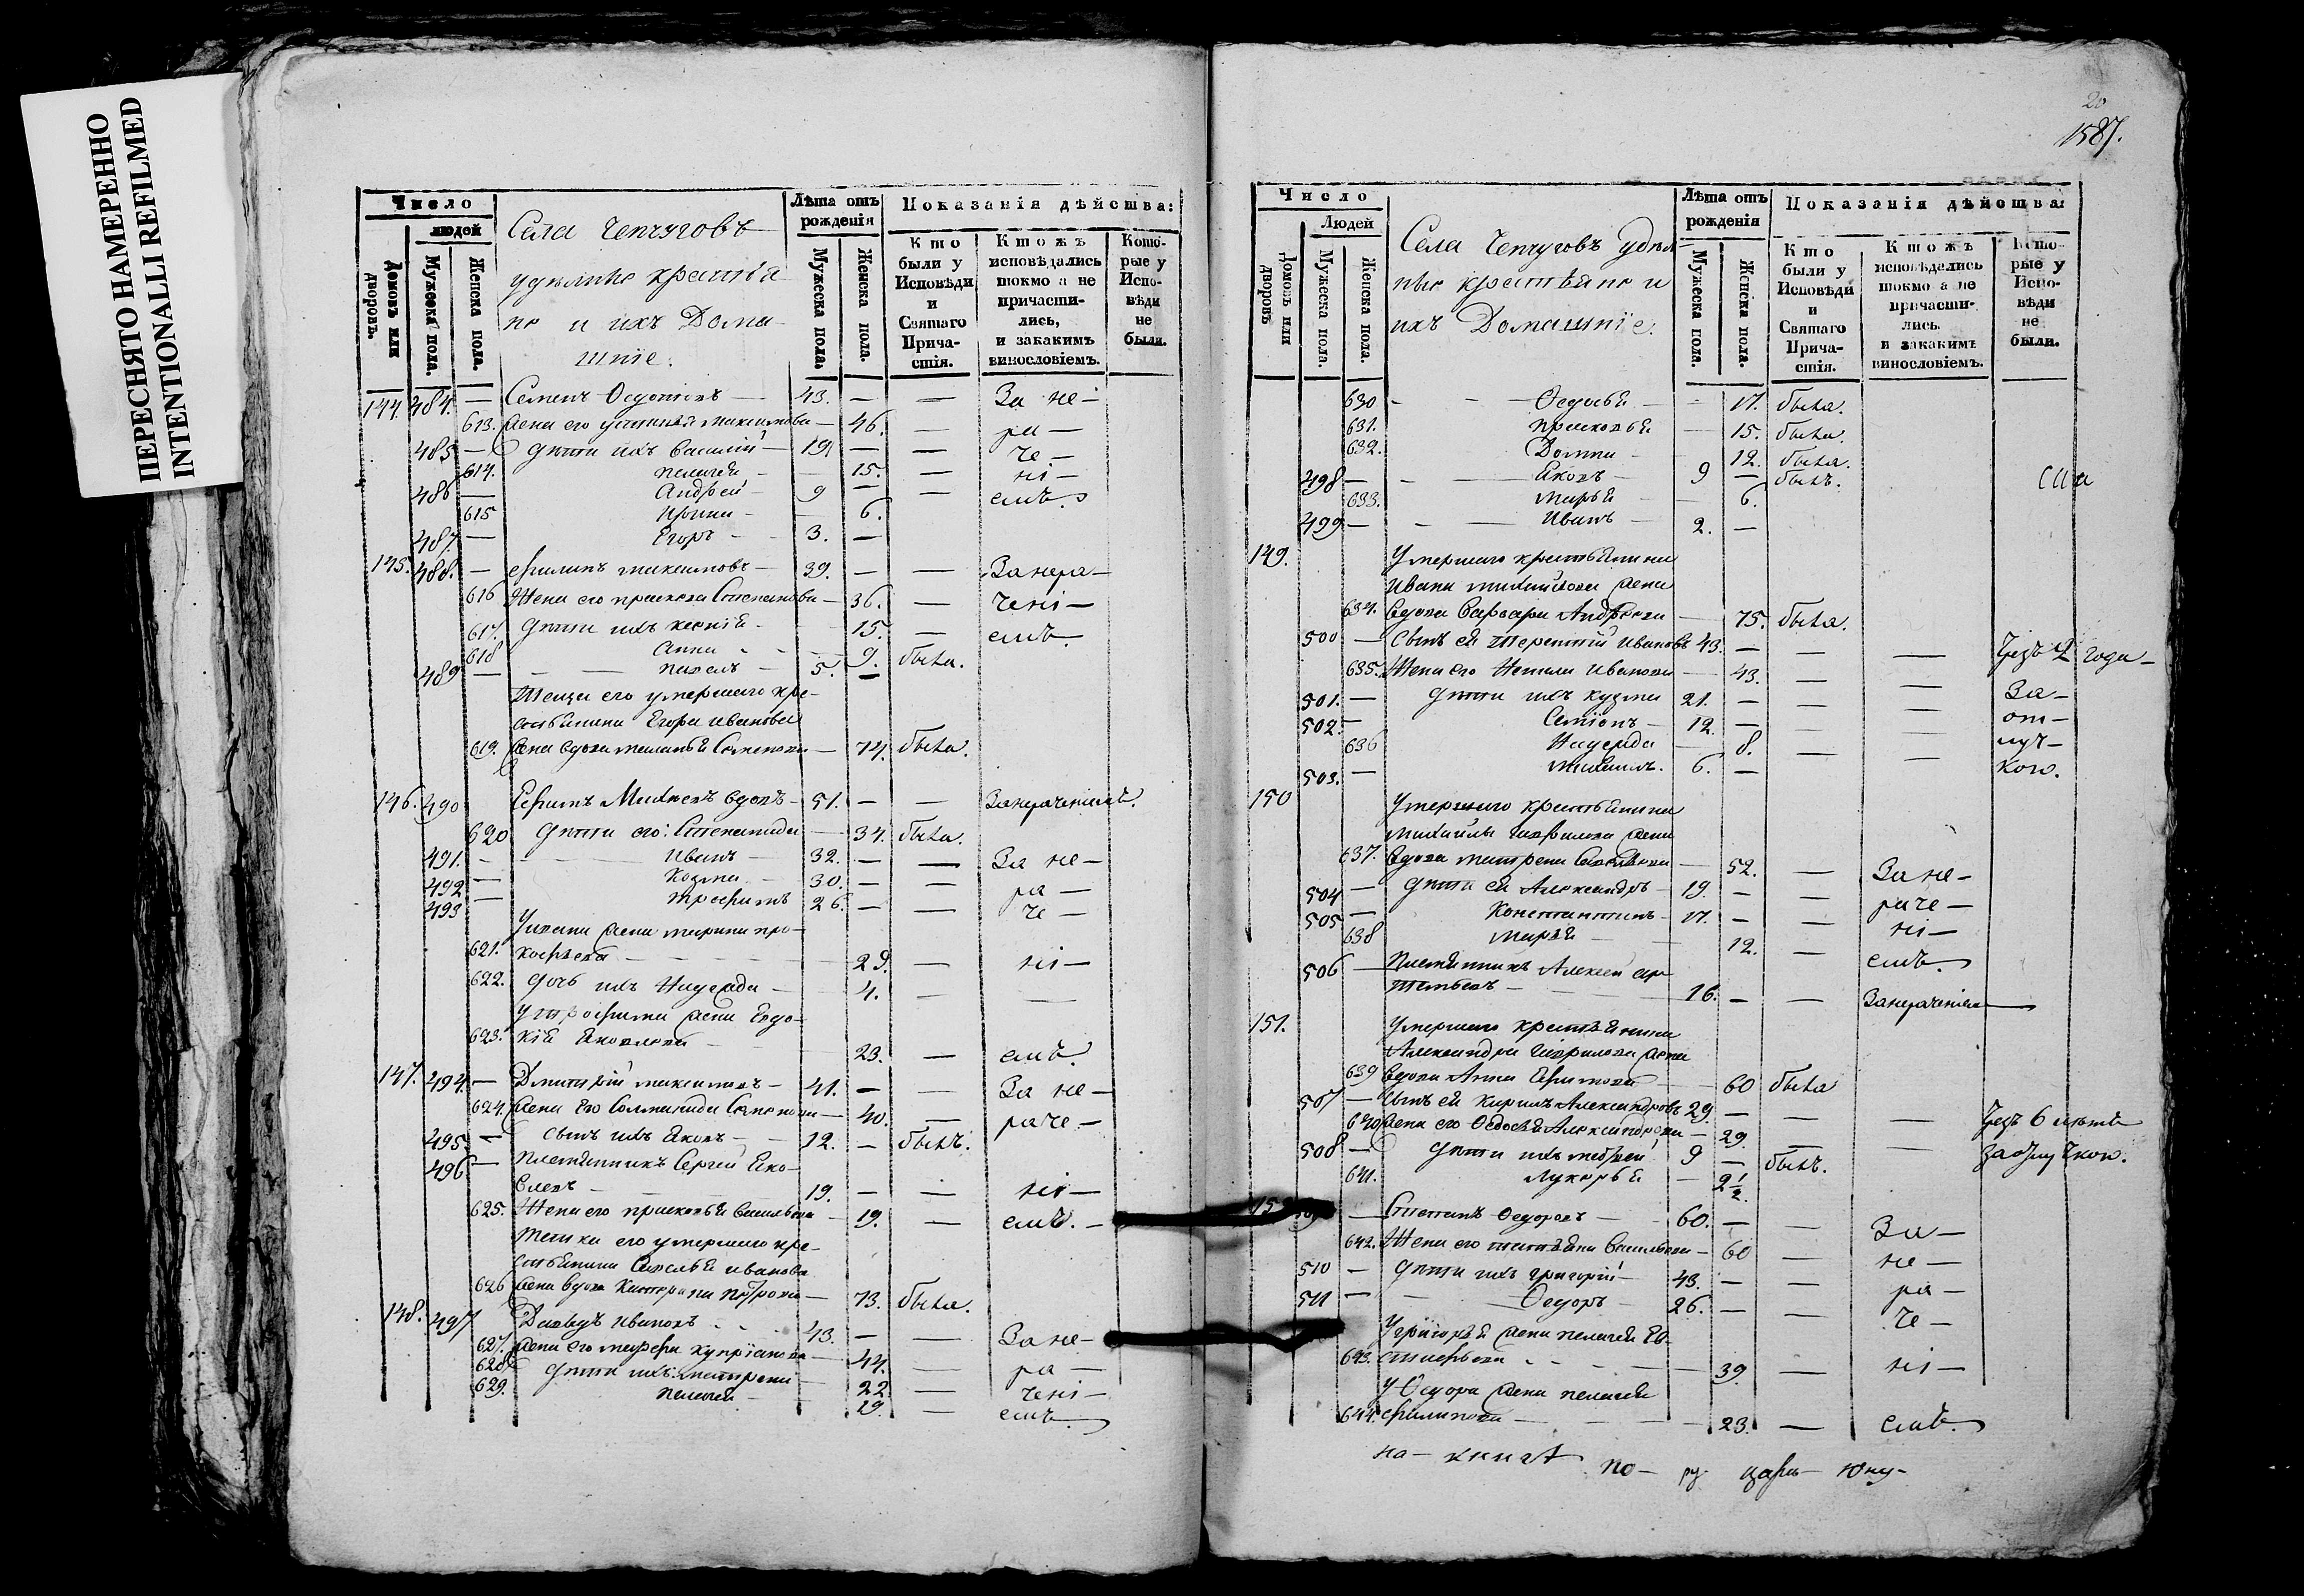 ПЕРЕСНЯТО НАМЕРЕННО
INTENTIONALLI REFILMED
Число
людей
Домовъ или дворовъ.
Мужеска пола.
Женска пола.
Села Чепчуговъ
удѣлные крестья-
не и ихъ Дома-
шніе.
Лѣта отъ рожденія
Мужеска пола.
Женска пола.
Показанія дѣйства:
Кто были у Исповѣди и Святаго Причастія.
Ктожъ исповѣдались токмо а не причастились, и закакимъ винословіемъ.
Которые у Исповѣди не были.
144. 484. — Семенъ Федотовъ — 43. — — За не-
613. жена его Устинья Максимова — 46. — ра —
485 — дѣти ихъ Василій — 19 — — че —
614. Пелагея — 15. — ні —
486 — Андрей — 9 — — емъ.
615 Ирина — 6.
487 — Егоръ — 3. —
145. 488. — Филипъ Максимовъ — 39. — — Занера —
616 Жена его Прасковья Степанова — 36. — чені —
617. дѣти ихъ Ксенія — 15. — емъ.
618 Анна — 9. была.
489 — Павелъ — 5. —
Теща его умершаго кре-
стьянина Егора Иванова
619. жена вдова Маланья Семенова — 74. была.
146. 490 Ефимъ Михѣевъ вдовъ — 51. — — Занераченіемъ.
620 дѣти его: Степанида — 34. была.
491. — Иванъ — 32. — — За не —
492 — Козма — 30. — — ра —
493 — Трофимъ 26. — — че —
Уивана жена Марина Про-
621. кофьева — 29. — ні —
622. дочь ихъ Надежда — 4. — —
Утрофима жена Евдо-
623. кія Яковлева — 23. — емъ.
147. 494. — Дмитрій Максимовъ — 41. — — За не —
624. жена его Соломанида Семенова — 40. — раче —
495. — сынъ ихъ Яковъ — 12. — былъ.
496 — Племянникъ Сергей Яко-
влевъ — 19. — — ні —
625. Жена его Прасковья Васильева — 19. — емъ. —
Тетка его умершаго кре-
стьянина Савелья Иванова
626 жена вдова Катерина Петрова — 73. была.
148. 497 Давыдъ Ивановъ 43. — — За не —
627. жена его Марфа Купріянова — 44. — ра —
628. дѣти ихъ: Матрена — 22. — чені —
629. Пелагея — 19. — емъ.
20
1587.
Число
Людей
Домовъ или дворовъ
Мужеска пола
Женска пола.
Села Чепчуговъ удѣл-
ные крестьяне и
ихъ Домашніе.
Лѣта отъ рожденія
Мужеска пола.
Женска пола.
Показанія дѣйства:
Кто были у Исповѣди и Святаго Причастія.
Ктожъ исповѣдались токмо а не причастились. и закакимъ винословіемъ.
Которые у Исповѣди не были.
630 — Федосья — 17. была.
631. Прасковья — 15. была.
632. Домна — 12. была.
498 — Яковъ — 9 — былъ.
633. Марья — 6.
499 — Иванъ — 2. —
149. Умершаго крестьянина
Ивана Михайлова жена
634. вдова Варвара Андреева — 75. была.
500 — Сынъ ея Терентій Ивановъ 43. — — — Чрезъ 2 года —
635. Жена его Наталья Иванова — 43. — — За —
501. — дѣти ихъ Кузма 21. — — — от —
502. — Семіонъ — 12. — — — луч —
636 Надежда — 8. — — кою.
503. — Михаилъ. 6. —
150 Умершаго крестьянина
Михайлы Гаврилова жена
637. вдова Матрена — 52. — За не —
504 — дѣти ея Александръ — 19. — — раче —
505 — Константинъ — 17. — — ні —
638 Марья — 12. — емъ.
506 — Племянникъ Алексей Ар-
темьевъ — 16. — — Занераченіемъ
151. Умершаго крестьянина
Александра Гаврилова жена
639 вдова Анна Ефимова — 60 была
507 — Сынъ ея Кирилъ Александровъ 29. — — — Чрезъ 6 лѣтъ
640 жена его Федосья Александрова — 29. — — заотлучкою.
508 — дѣти ихъ Андрей 9 — былъ.
641. Лукерья — 2½.
152 509 — Степанъ Федоровъ — 60. — — За —
642. Жена его Татьяна Васильева — 60 — не —
510 — дѣти ихъ Григорій — 43. — — ра —
511 — Федоръ — 26. — — че —
Угригорья жена Пелагея Ев-
643. стифьева — 39. — ні —
У Федора жена Пелагея
644. Филипова — 23. — емъ.